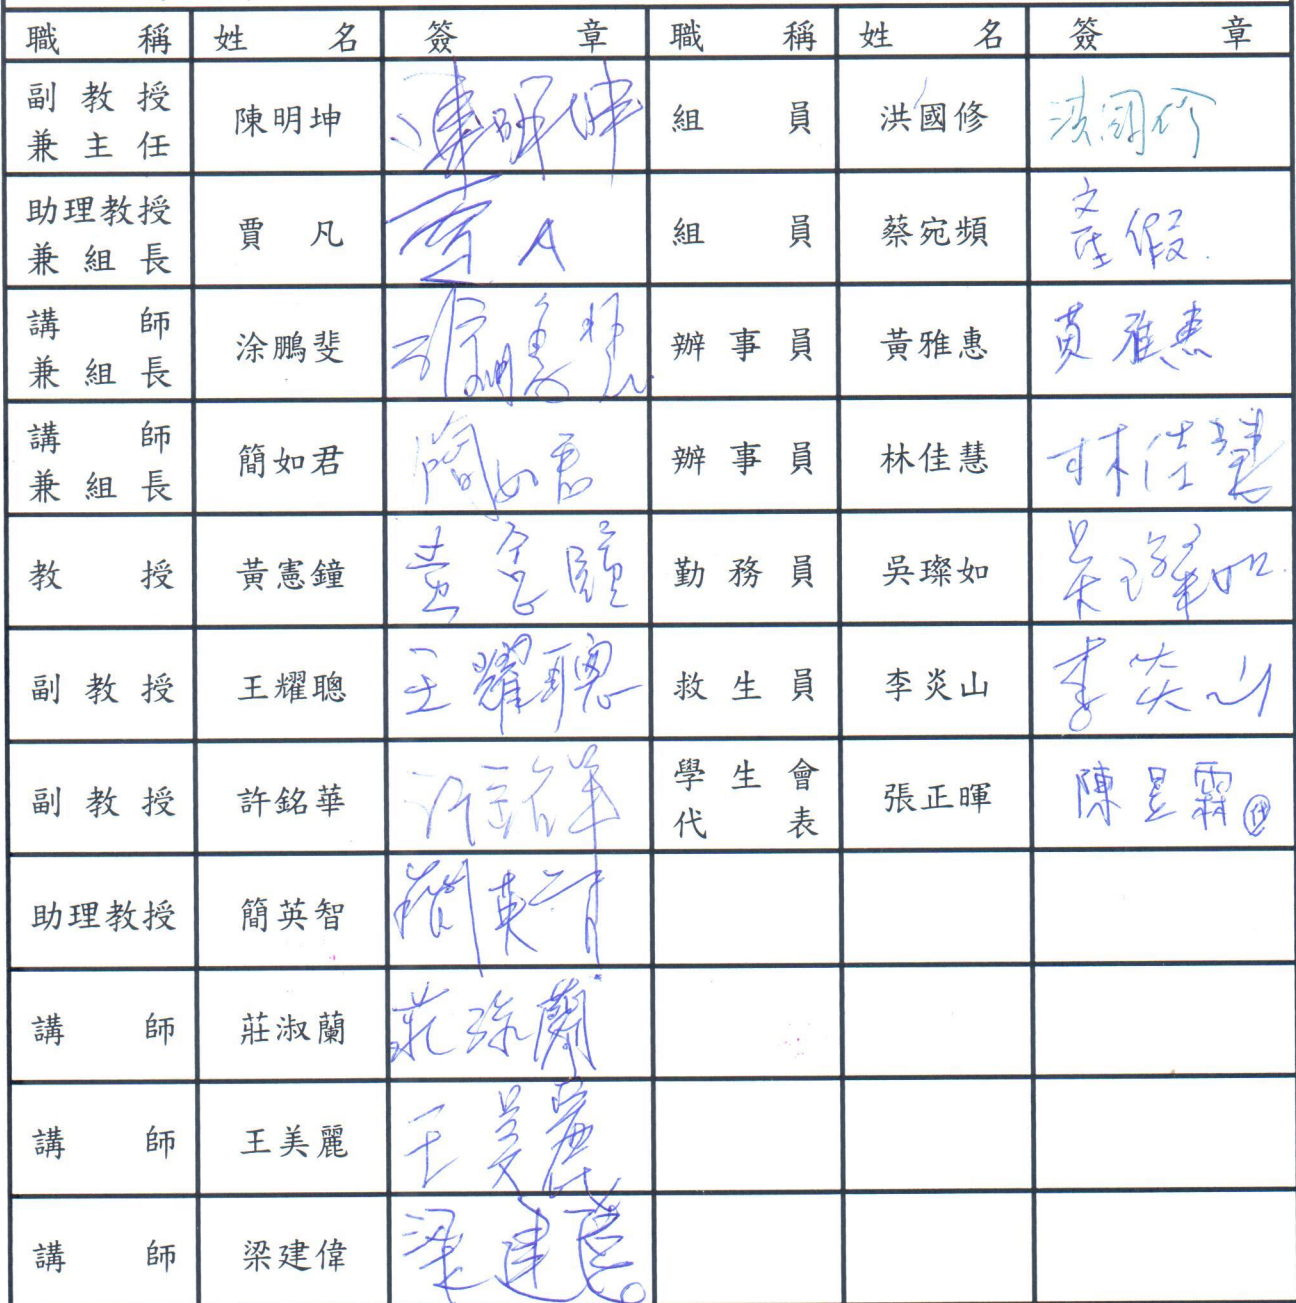 職稱 姓名 簽章 職稱 姓名 簽章
副教授兼主任 陳明坤 陳明坤 組員 洪國修 洪國修
助理教授兼組長 賈凡 組員 蔡宛頻 產假
講師兼組長 涂鵬斐 辦事員 黃雅惠 黃雅惠
講師兼組長 簡如君 簡如君 辦事員 林佳慧 林佳慧
教授 黃憲鐘 勤務員 吳璨如 吳璨如
副教授 王耀聰 王耀聰 救生員 李炎山 李炎山
副教授 許銘華 許銘華 學生會代表 張正暉 陳昱霖 代
助理教授 簡英智
講師 莊淑蘭 莊淑蘭
講師 王美麗 王美麗
講師 梁建偉 梁建偉